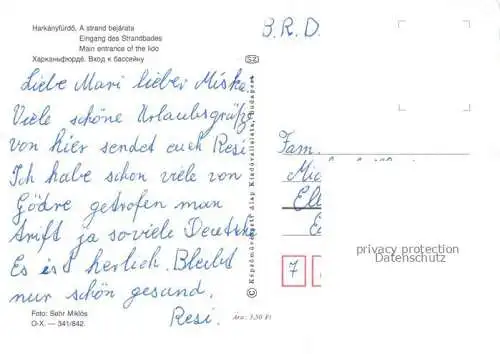 Harkányfürdő, A strand bejárata
Eingang des Strandbades
Main entrance of the lido
Харканьфюрдё. Вход к бассейну
SZ
B. R. D.
Liebe Mari lieber Miska
Viele schöne Urlaubsgrüße
von hier sendet euch Resi
Ich habe schon viele von
Gödre getrofen man
trift ja soviele Deutsche
Es ist herlich. Bleibt
nur schön gesund.
Resi.
Foto: Sehr Miklós
O-X. — 341/842.
Ára: 3,50 Ft
© Képzőművészeti Alap Kiadóvállalata, Budapest
Fam.
7
privacy protection
Datenschutz